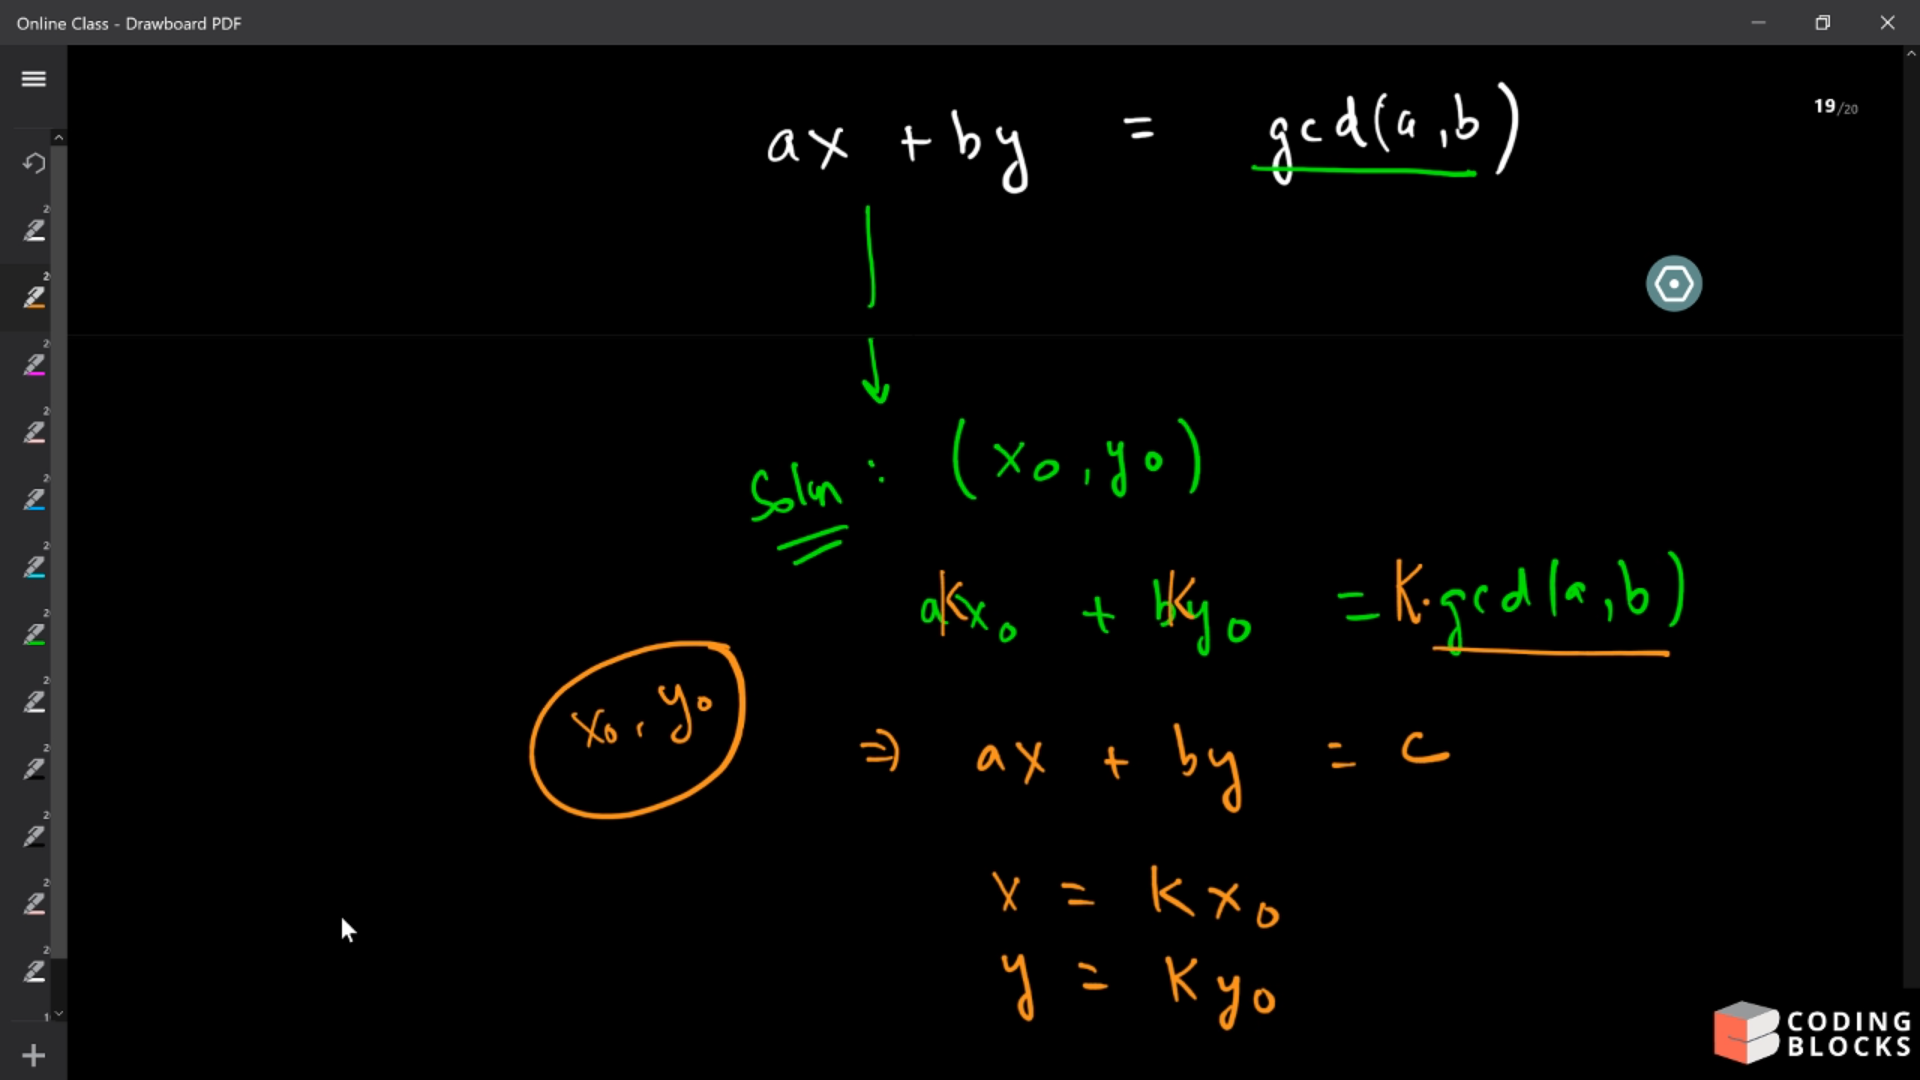 Online Class - Drawboard PDF
19/20
ax + by = gcd(a,b)
Soln : (x₀, y₀)
akx₀ + bky₀ = K.gcd(a,b)
x₀, y₀
⇒ ax + by = c
x = kx₀
y = ky₀
CODING
BLOCKS